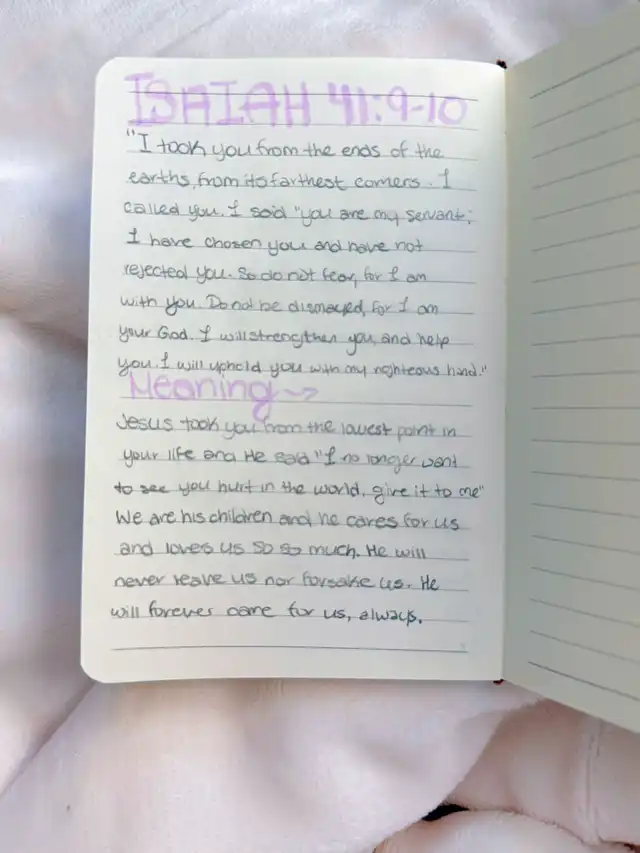 ISAIAH 41:9-10
"I took you from the ends of the
earths, from its farthest corners. I
called you. I said "you are my servant;
I have chosen you and have not
rejected you. So do not fear, for I am
with you. Do not be dismayed, for I am
your God. I will strengthen you, and help
you. I will uphold you with my righteous hand."
Meaning ~>
Jesus took you from the lowest point in
your life and He said "I no longer want
to see you hurt in the world, give it to me"
We are his children and he cares for us
and loves us so so much. He will
never leave us nor forsake us. He
will forever care for us, always.